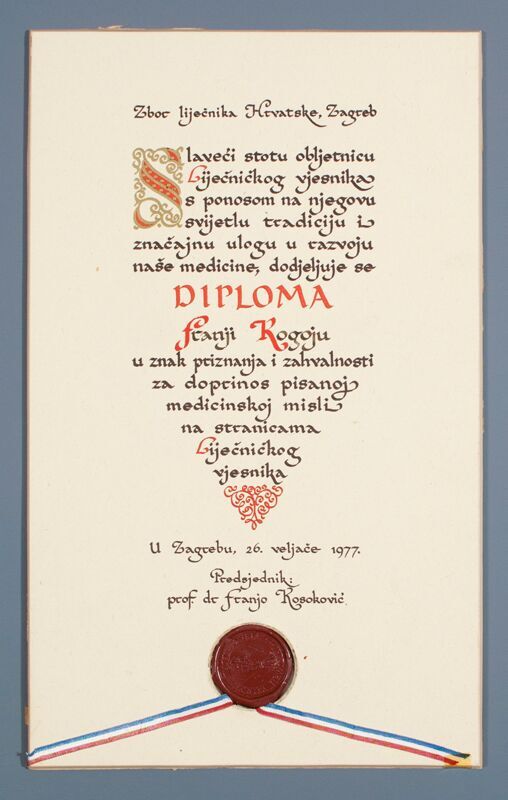 Zbor liječnika Hrvatske, Zagreb
Slaveći stotu obljetnicu
Liječničkog vjesnika
s ponosom na njegovu
svijetlu tradiciju i
značajnu ulogu u razvoju
naše medicine, dodjeljuje se
DIPLOMA
Franji Kogoju
u znak priznanja i zahvalnosti
za doprinos pisanoj
medicinskoj misli
na stranicama
Liječničkog
vjesnika
U Zagrebu, 26. veljače 1977.
Predsjednik:
prof. dr Franjo Kosoković